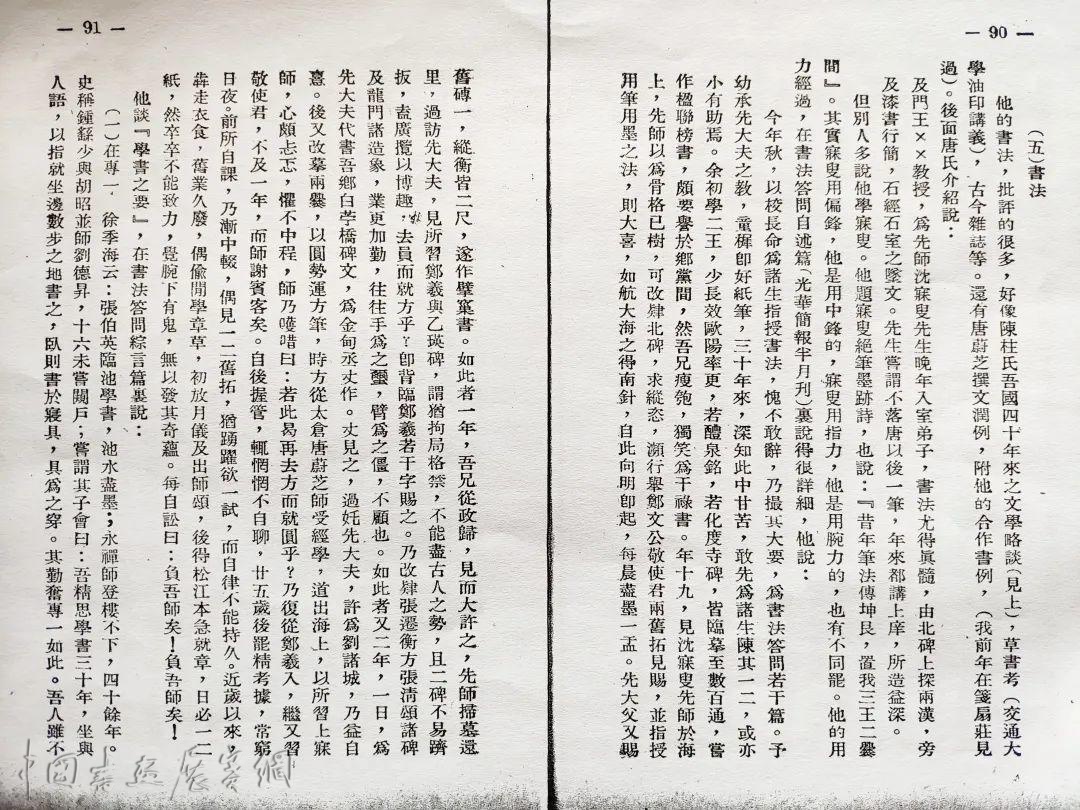 — 90 —
（五）書法
他的書法，批評的很多，好像陳柱氏吾國四十年來之文學略談（見上），草書考（交通大
學油印講義），古今雜誌等。還有唐蔚芝撰文潤例，附他的合作書例，（我前年在箋扇莊見
過）。後面唐氏介紹說：
及門王××教授，爲先師沈寐叟先生晚年入室弟子，書法尤得眞髓，由北碑上探兩漢，旁
及漆書行簡，石經石室之墜文。先生嘗謂不落唐以後一筆，年來都講上庠，所造益深。
但別人多說他學寐叟。他題寐叟絕筆墨跡詩，也說：『昔年筆法傳坤艮，置我三王二爨
間』。其實寐叟用偏鋒，他是用中鋒的，寐叟用指力，他是用腕力的，也有不同罷。他的用
力經過，在書法答問自述篇（光華簡報半月刊）裏說得很詳細，他說：
今年秋，以校長命爲諸生指授書法，愧不敢辭，乃撮其大要，爲書法答問若干篇。予
幼承先大夫之教，童穉卽好紙筆，三十年來，深知此中甘苦，敢先爲諸生陳其一二，或亦
小有助焉。余初學二王，少長效歐陽率更，若醴泉銘，若化度寺碑，皆臨摹至數百通，嘗
作楹聯榜書，頗要譽於鄉黨間，然吾兄瘦匏，獨笑爲干祿書。年十九，見沈寐叟先師於海
上，先師以爲骨格已樹，可改肄北碑，求縱恣，瀕行舉鄭文公敬使君兩舊拓見賜，並指授
用筆用墨之法，則大喜，如航大海之得南針，自此向明卽起，每晨盡墨一盂。先大父又賜
— 91 —
舊磚一，縱衡皆二尺，遂作擘窠書。如此者一年，吾兄從政歸，見而大許之，先師掃墓還
里，過訪先大夫，見所習鄭羲與乙瑛碑，謂猶拘局格禁，不能盡古人之勢，且二碑不易躋
扳，盍廣攬以博趣，去員而就方乎？卽背臨鄭羲若干字賜之。乃改肄張遷衡方張淸頌諸碑
及龍門諸造象，業更加勤，往往手爲之䘐，臂爲之僵，不顧也。如此者又二年，一日，爲
先大夫代書吾鄉白苧橋碑文，爲金甸丞丈作。丈見之，過奼先大夫，許爲劉諸城，乃益自
憙。後又改摹兩爨，以圓勢運方筆，時方從太倉唐蔚芝師受經學，道出海上，以所習上寐
師，心頗忐忑，懼不中程，師乃嚄唶曰：若此曷再去方而就圓乎？乃復從鄭羲入，繼又習
敬使君，不及一年，而師謝賓客矣。自後握管，輒惘惘不自聊，廿五歲後罷精考據，常窮
日夜。前所自課，乃漸中輟，偶見一二舊拓，猶踴躍欲一試，而自律不能持久。近歲以來，
犇走衣食，舊業久廢，偶偸閒學章草，初放月儀及出師頌，後得松江本急就章，日必一二
紙，然卒卒不能致力，覺腕下有鬼，無以發其奇蘊。每自訟曰：負吾師矣！負吾師矣！
他談『學書之要』，在書法答問綜言篇裏說：
（一）在專一　徐季海云：張伯英臨池學書，池水盡墨；永禪師登樓不下，四十餘年。
史稱鍾繇少與胡昭並師劉德昇，十六未嘗闚戶；嘗謂其子會曰：吾精思學書三十年，坐與
人語，以指就坐邊數步之地書之，臥則書於寢具，具爲之穿。其勤奮專一如此。吾人雖不
中國書法展賽網